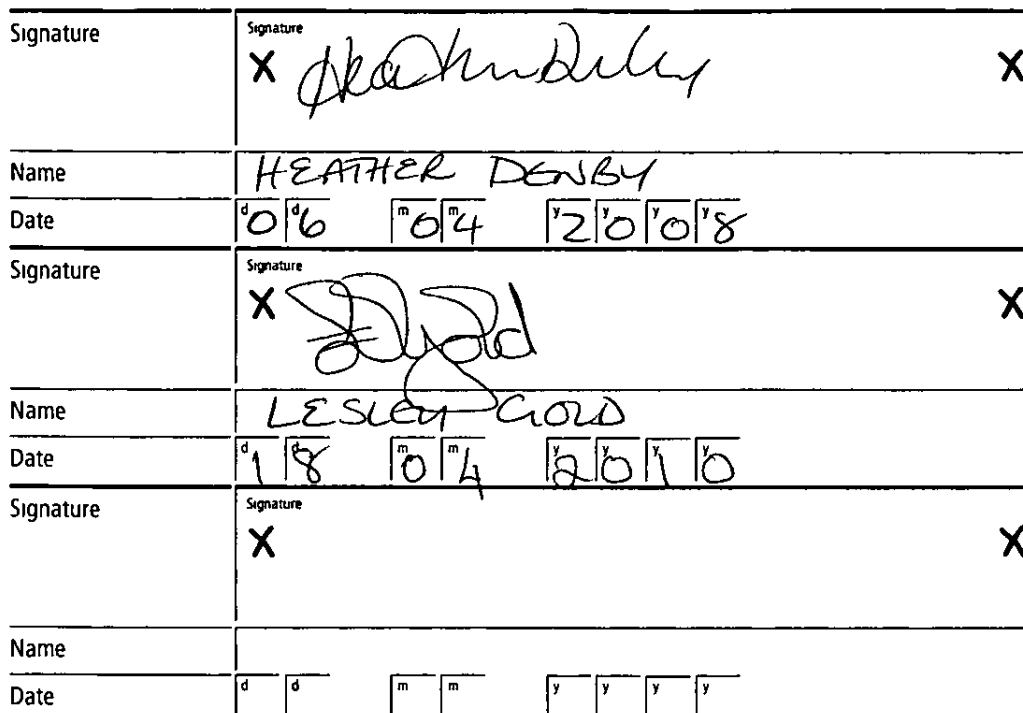 Signature
Signature
X Heather Denby X
Name HEATHER DENBY
Date d0 d6 m0 m4 y2 y0 y0 y8
Signature
Signature
X X
Name LESLEY GOLD
Date d1 d8 m0 m4 y2 y0 y1 y0
Signature
Signature
X X
Name
Date d d m m y y y y